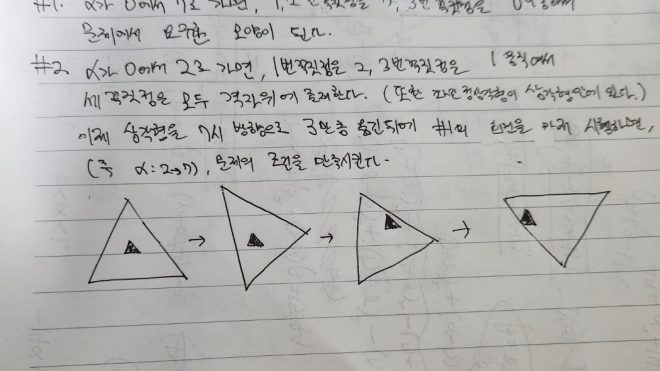 #1. α가 0에서 7로 가면, 1, 2번 꼭짓점을 3번 꼭짓점을 0
문제에서 요구한 모양이 된다.
#2 α가 0에서 2로 가면, 1번꼭짓점은 2, 3번꼭짓점은 1 움직여서
세 꼭짓점은 모두 격자위에 존재한다. (또한 파란 정삼각형이 삼각형안에 있다.)
이제 삼각형을 7시 방향으로 3만큼 옮긴뒤에 #1의 회전을 마저 시행하면,
(즉 α: 2→7), 문제의 조건을 만족시킨다.